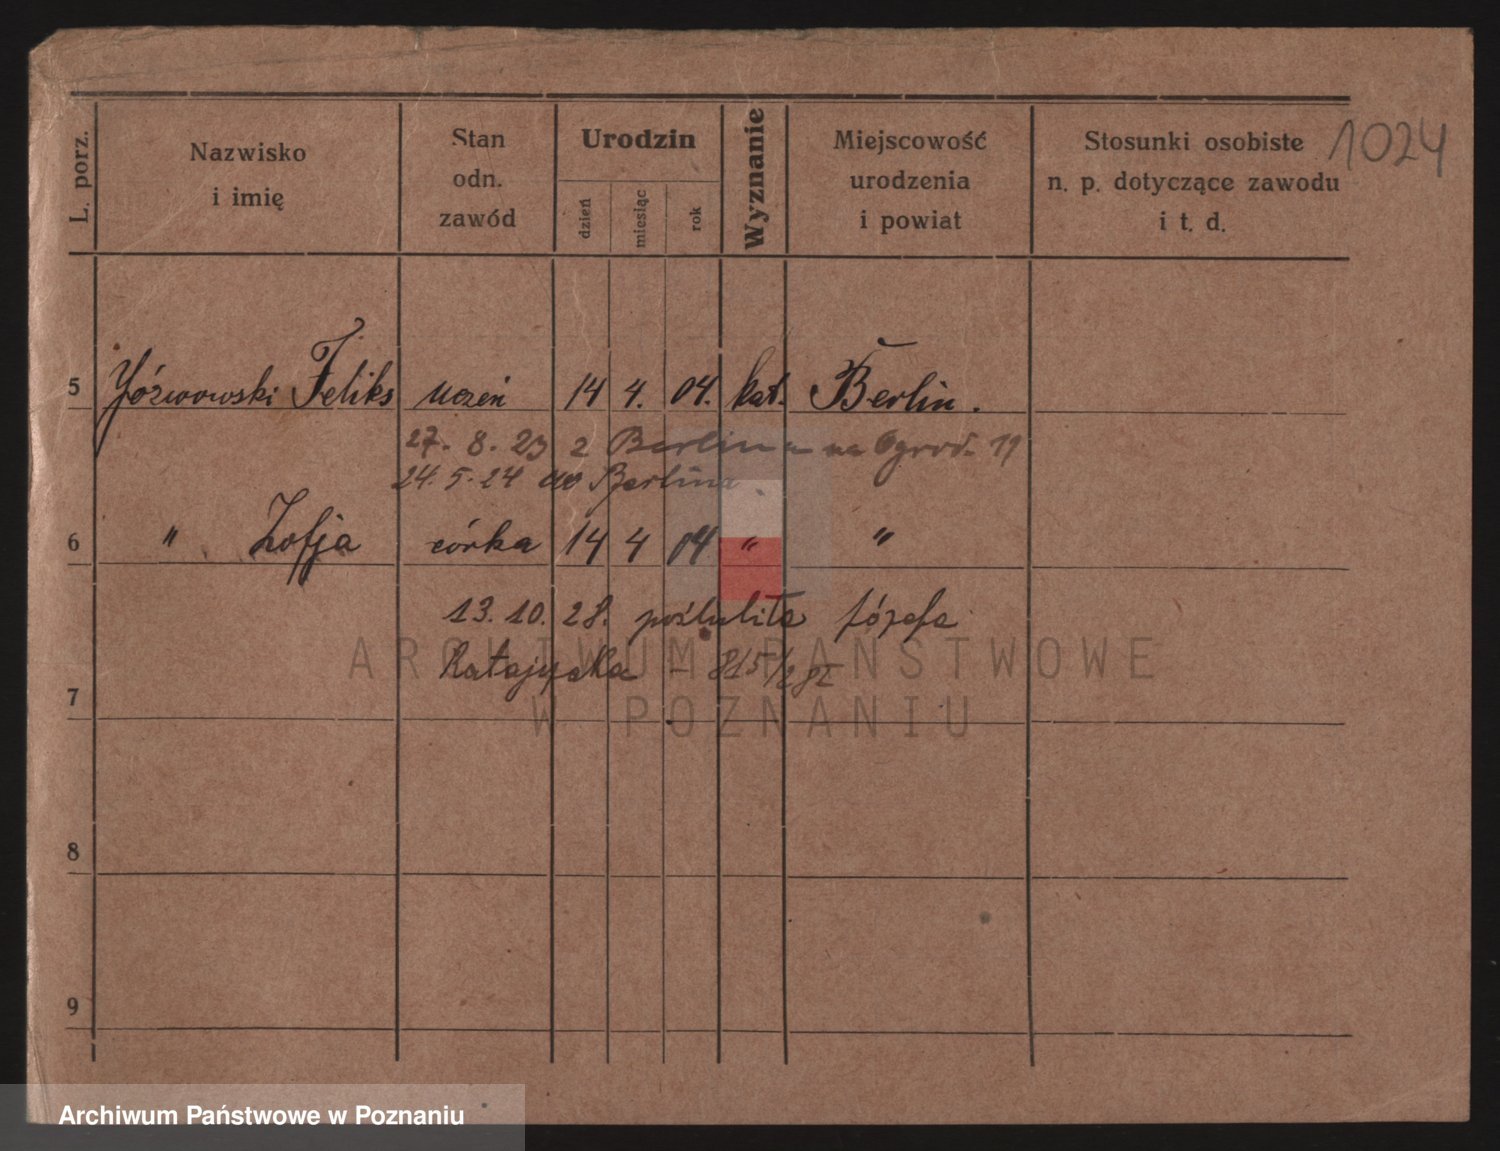 1024
L. porz.
Nazwisko
i imię
Stan
odn.
zawód
Urodzin
dzień
miesiąc
rok
Wyznanie
Miejscowość
urodzenia
i powiat
Stosunki osobiste
n. p. dotyczące zawodu
i t. d.
5 Józwowski Feliks uczeń 14 4. 04. kat. Berlin.
27. 8. 23 z Berlina na Ogrod. 11
24. 5. 24 do Berlina
6 " Zofja córka 14 4 04 " "
13. 10. 28. poślubiła Józefa
7 Ratajczaka
8
9
ARCHIWUM PAŃSTWOWE
W POZNANIU
Archiwum Państwowe w Poznaniu